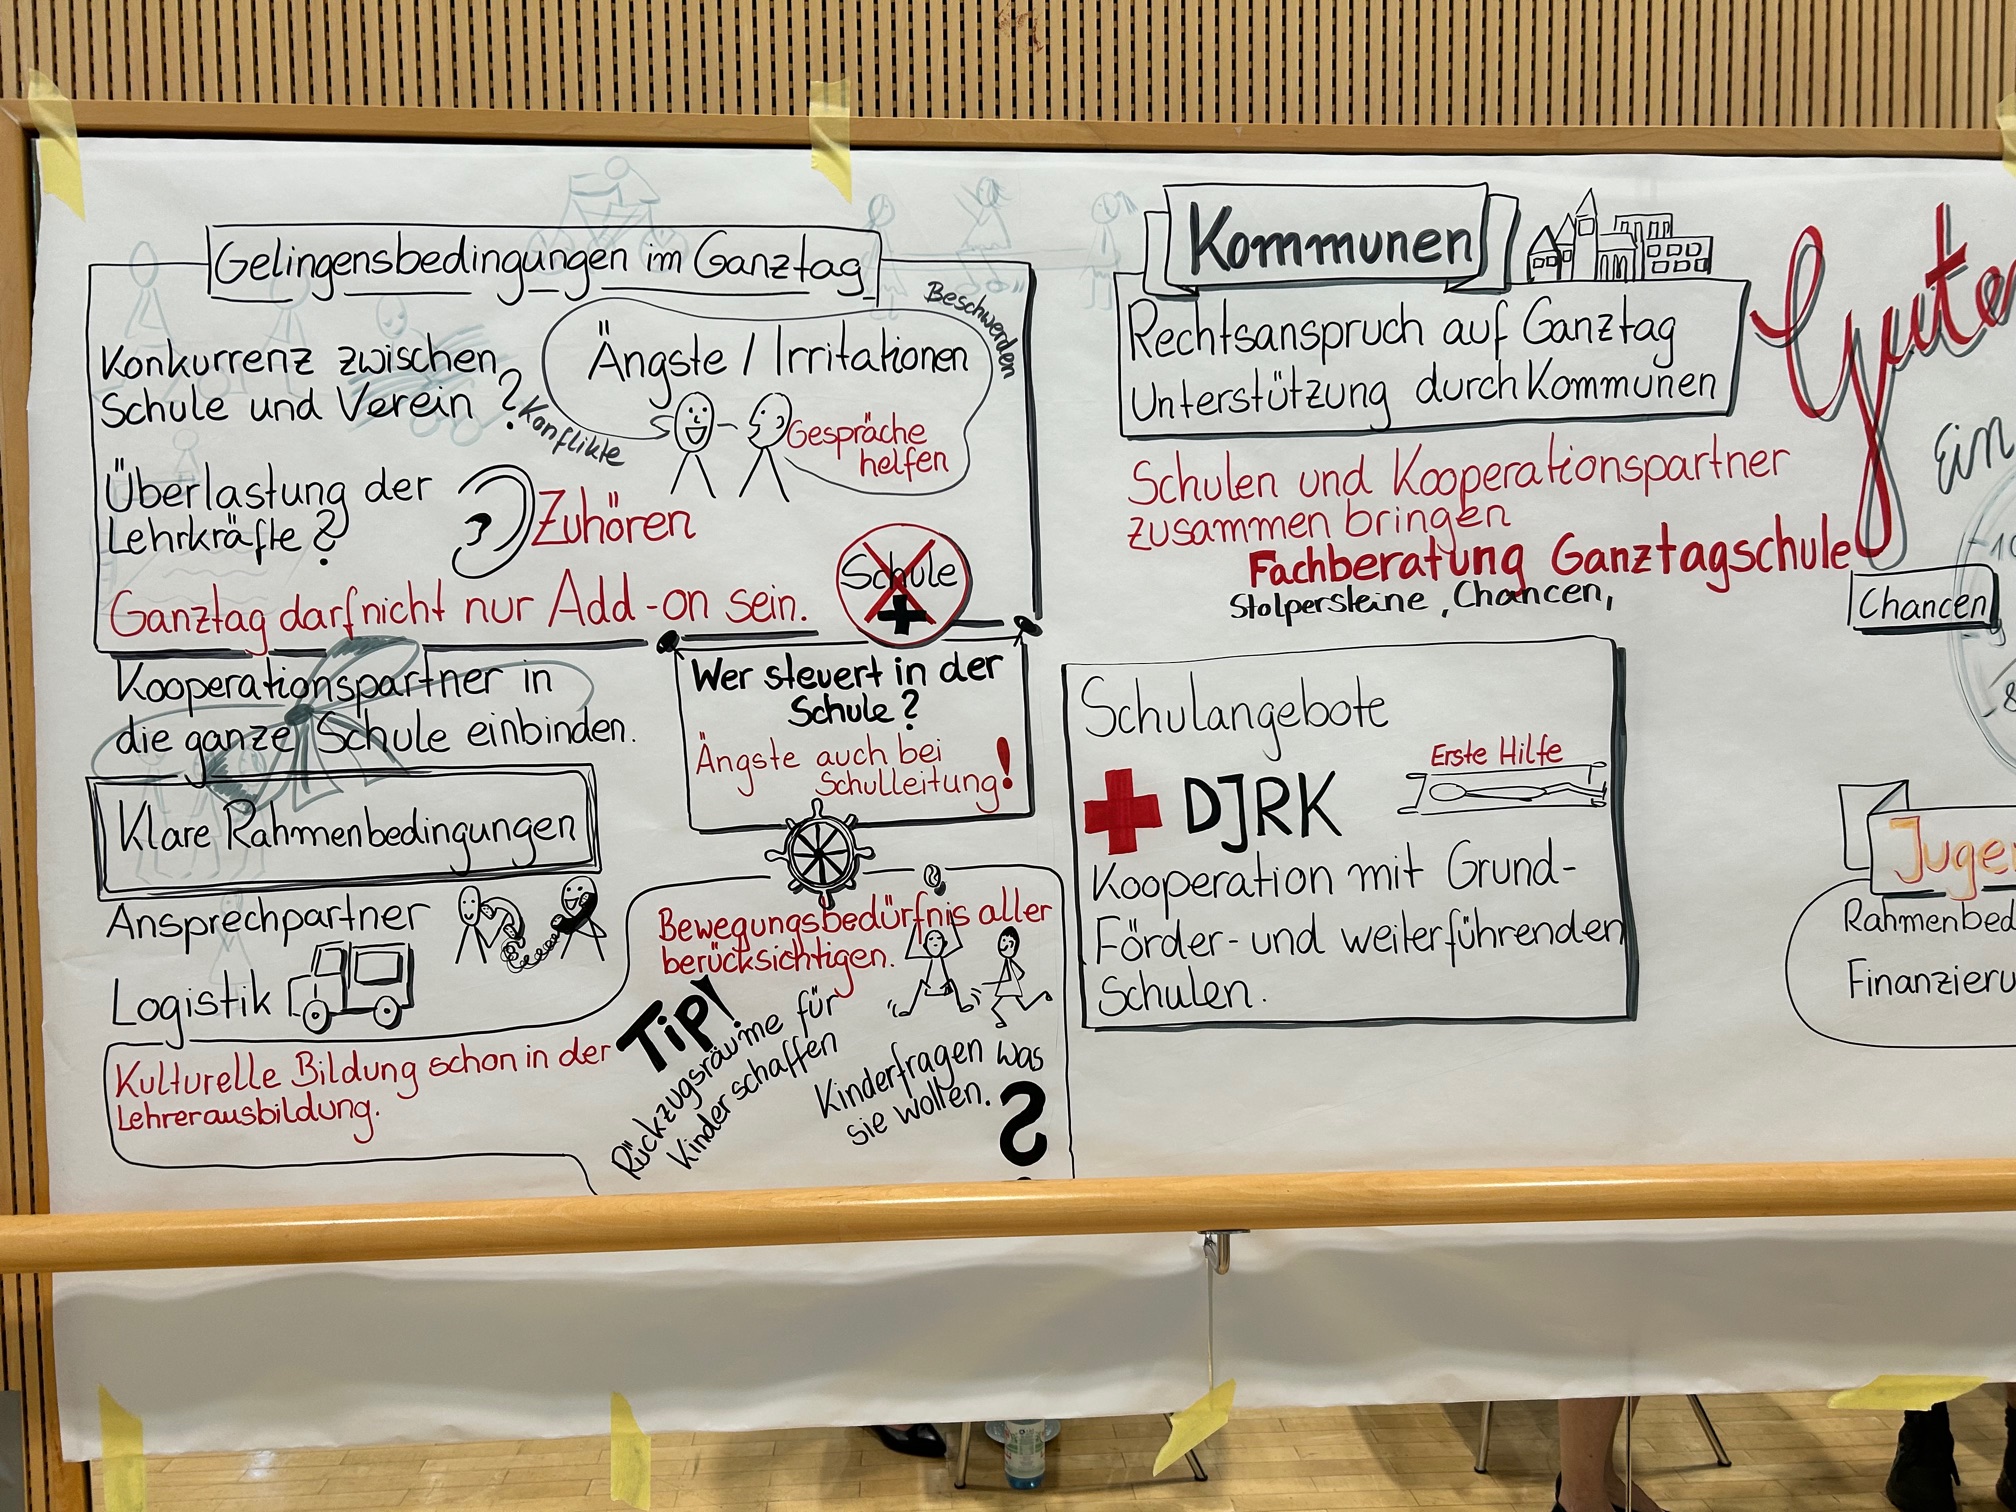 Gelingensbedingungen im Ganztag
Konkurrenz zwischen
Schule und Verein ?
Konflikte
Ängste / Irritationen
Beschwerden
Gespräche
helfen
Überlastung der
Lehrkräfte ?
Zuhören
Ganztag darf nicht nur Add-on sein.
Schule
+
Kooperationspartner in
die ganze Schule einbinden.
Wer steuert in der
Schule ?
Ängste auch bei
Schulleitung!
Klare Rahmenbedingungen
Ansprechpartner
Logistik
Kulturelle Bildung schon in der
Lehrerausbildung.
Bewegungsbedürfnis aller
berücksichtigen.
Tip!
Rückzugsräume für
Kinder schaffen
Kinderfragen was
sie wollen.
?
Kommunen
Rechtsanspruch auf Ganztag
Unterstützung durch Kommunen
Schulen und Kooperationspartner
zusammen bringen
Fachberatung Ganztagschule
Stolpersteine, Chancen,
Schulangebote
Erste Hilfe
DJRK
Kooperation mit Grund-
Förder- und weiterführenden
Schulen.
Guter
Ein
Chancen
10
8
Jugen
Rahmenbed
Finanzieru